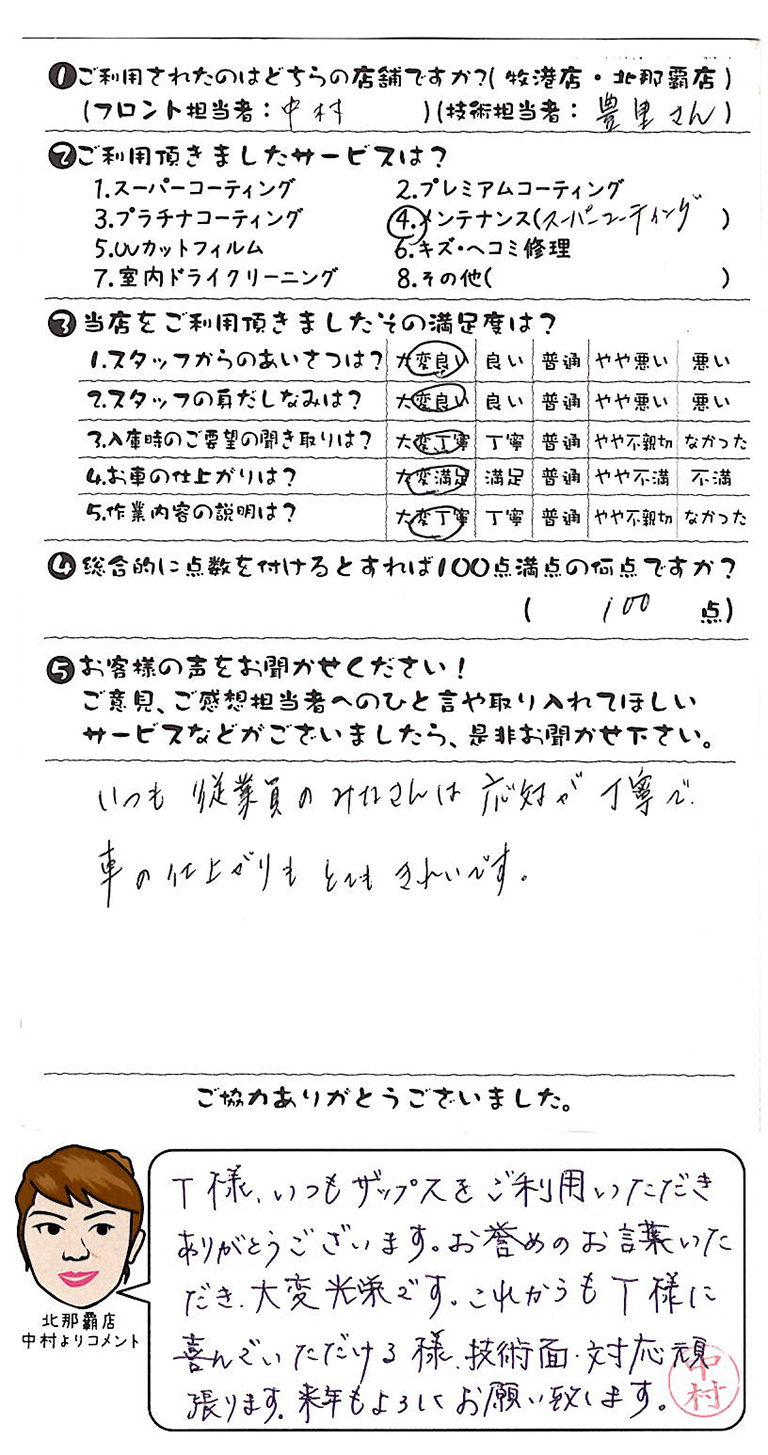 ❶ご利用されたのはどちらの店舗ですか?(牧港店・北那覇店)
(フロント担当者:中村 )(技術担当者:豊里さん)
❷ご利用頂きましたサービスは?
1.スーパーコーティング 2.プレミアムコーティング
3.プラチナコーティング 4.メンテナンス(スーパーコーティング )
5.UVカットフィルム 6.キズ・ヘコミ修理
7.室内ドライクリーニング 8.その他( )
❸当店をご利用頂きましたその満足度は?
1.スタッフからのあいさつは? 大変良い 良い 普通 やや悪い 悪い
2.スタッフの身だしなみは? 大変良い 良い 普通 やや悪い 悪い
3.入庫時のご要望の聞き取りは? 大変丁寧 丁寧 普通 やや不親切 なかった
4.お車の仕上がりは? 大変満足 満足 普通 やや不満 不満
5.作業内容の説明は? 大変丁寧 丁寧 普通 やや不親切 なかった
❹総合的に点数を付けるとすれば100点満点の何点ですか?
( 100 点)
❺お客様の声をお聞かせください!
ご意見、ご感想担当者へのひと言や取り入れてほしい
サービスなどがございましたら、是非お聞かせ下さい。
いつも従業員のみなさんは応対が丁寧で、
車の仕上がりもとてもきれいです。
ご協力ありがとうございました。
T様、いつもザップスをご利用いただき
ありがとうございます。お誉めのお言葉いた
だき、大変光栄です。これからもT様に
喜んでいただける様、技術面・対応頑
張ります。来年もよろしくお願い致します。
中村
北那覇店
中村よりコメント